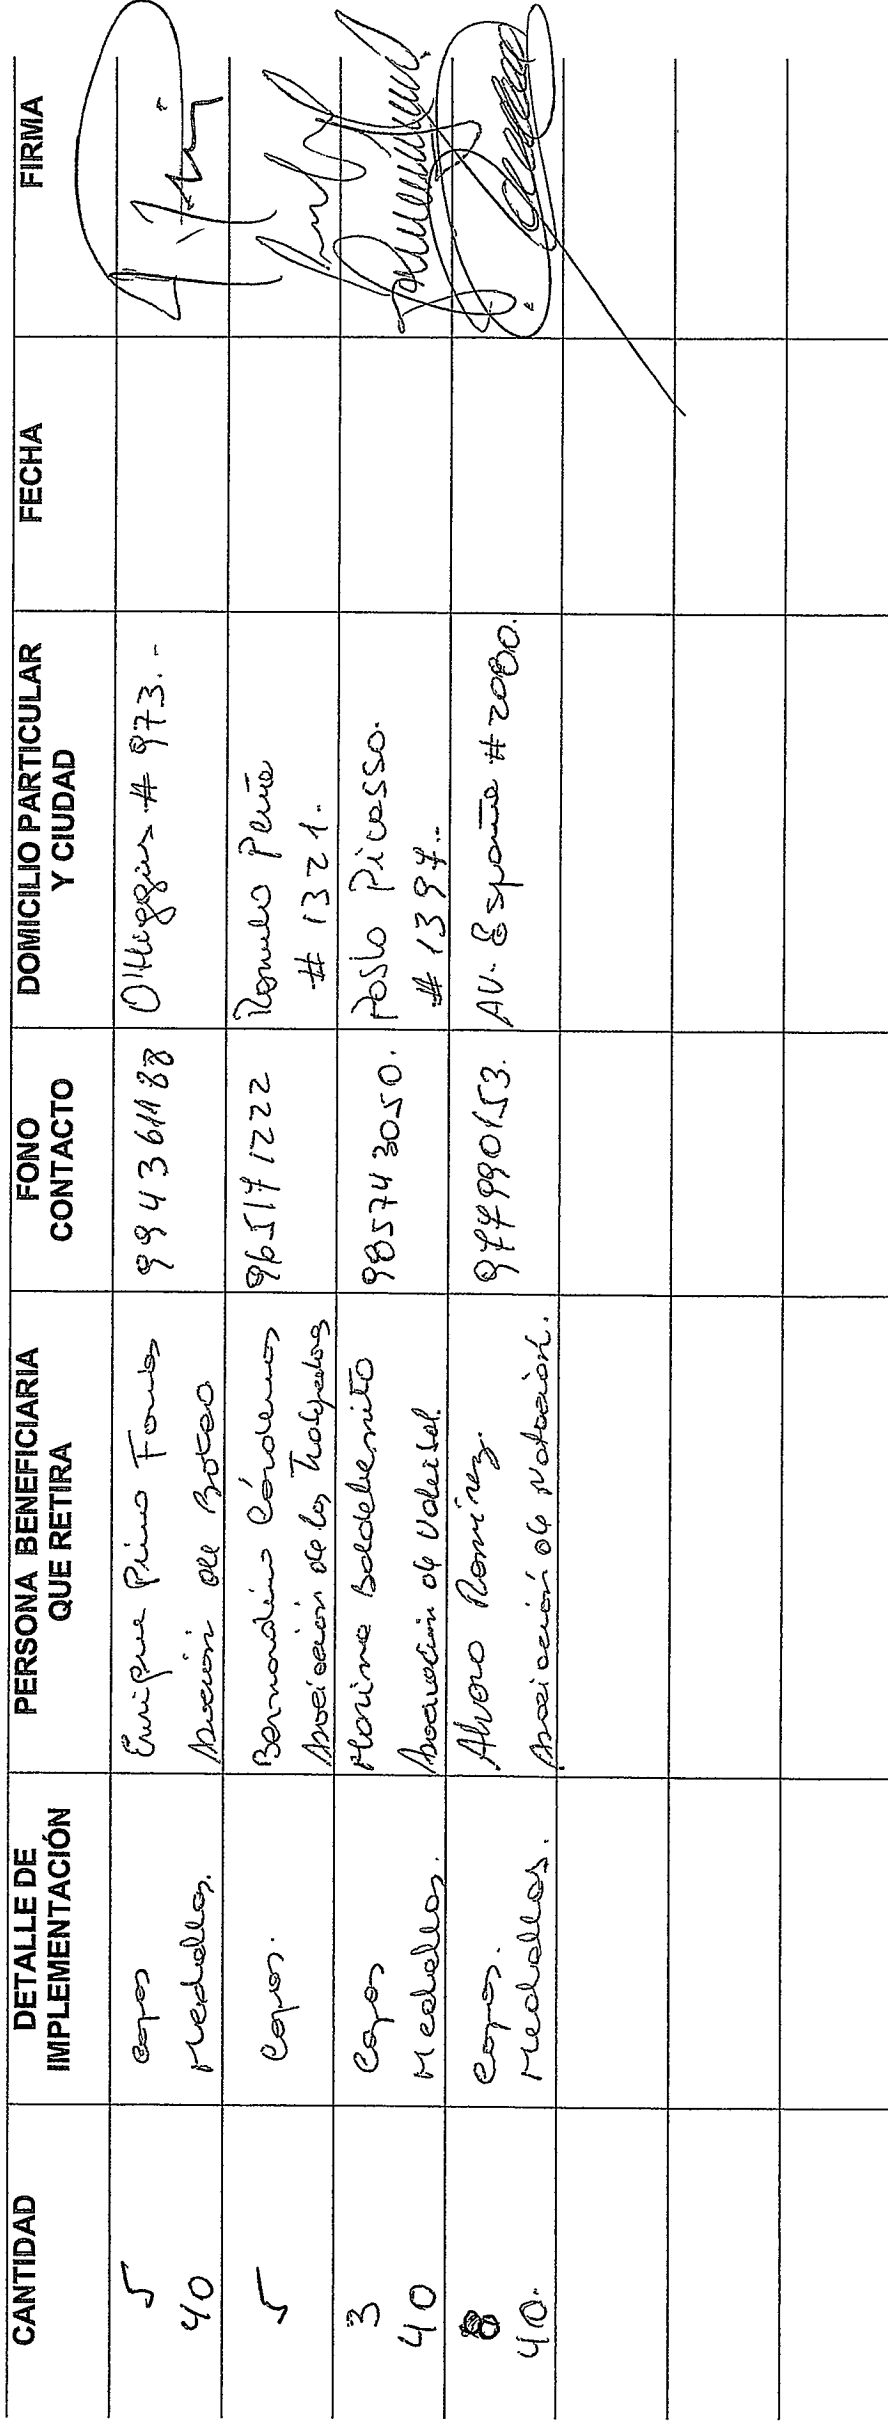 CANTIDAD
DETALLE DE
IMPLEMENTACIÓN
PERSONA BENEFICIARIA
QUE RETIRA
FONO
CONTACTO
DOMICILIO PARTICULAR
Y CIUDAD
FECHA
FIRMA
5 copas
40 Medallas.
Enrique Pino
Asociación de
994361188
O'Higgins # 973.-
5
Copas.
Bernardino Cárdenas
Asociación de los
96517 1222
Romulo Peña
# 1321.
3 Copas
40 Medallas.
Marina Baldebenito
Asociación de Voleibol.
985743050.
Pablo Picasso.
# 1397.-
8 Copas.
40. Medallas.
Alvaro Ramírez.
Asociación de Natación.
977990153.
AV. España # 2080.